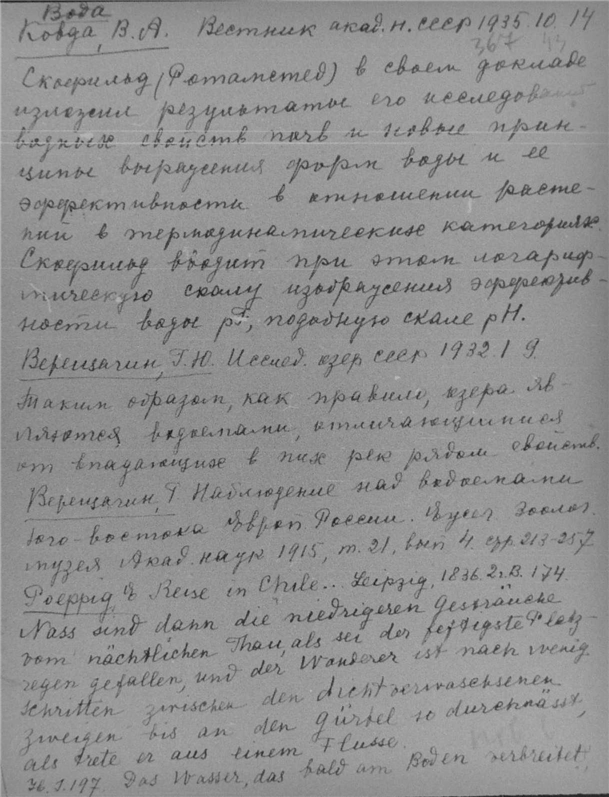 Вода
Ковда, В.А. Вестник акад. н. ссср 1935. 10. 14
367 43
Скофильд (Ротамстед) в своем докладе
изложил результаты его исследований
водных свойств почв и новые прин-
ципы выражения форм воды и ее
эффективности в отношении расте-
нии в термодинамических категориях.
Скофильд вводит при этом логариф-
мическую скалу изображения эффектив-
ности воды pF, подобную скале pH.
Верещагин, Г.Ю. Исслед. озер ссср 1932. 1 9.
Таким образом, как правило, озера яв-
ляются водоемами, отличающимися
от впадающих в них рек рядом свойств.
Верещагин, Г. Наблюдение над водоемами
Юго-востока Европ России. Ежег. Зоолог.
музея Акад. наук 1915, т. 21, вып 4. стр. 213-257
Poeppig, E Reise in Chile... Leipzig, 1836. 2. B. 174.
Nass sind dann die niedrigeren Gesträuche
vom nächtlichen Thau, als sei der heftigste Platz-
regen gefallen, und der Wanderer ist nach wenig
Schritten zwischen den dicht verwachsenen
Zweigen bis an den Gürtel so durchnässt,
als trete er aus einem Flusse.
Ib. S. 197. Das Wasser, das bald am Boden verbreitet,